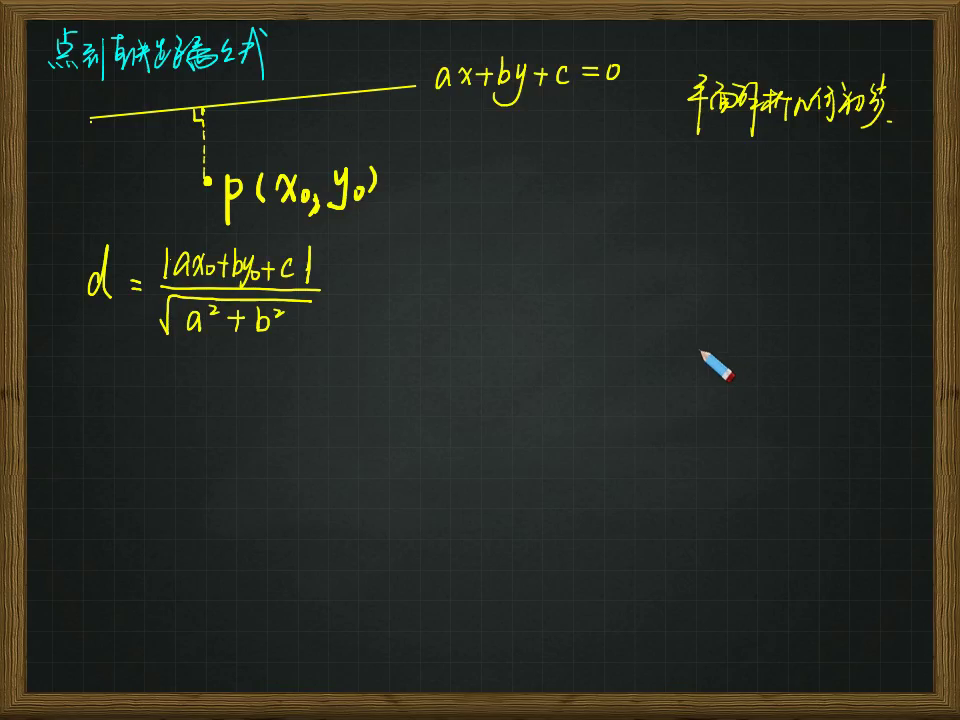 点到直线距离公式
ax+by+c=0
平面解析几何初步
P(x₀,y₀)
d = |ax₀+by₀+c| / √(a²+b²)